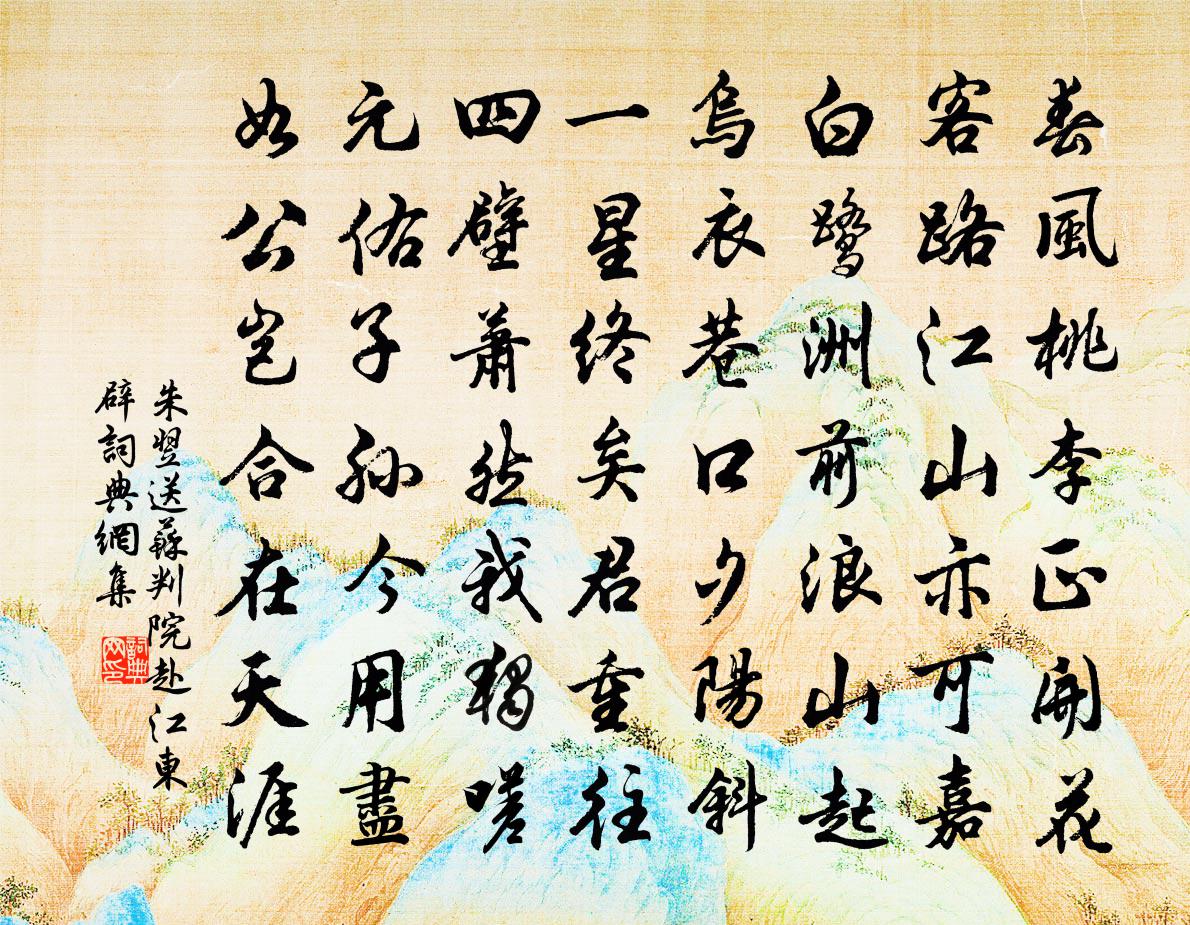 春風桃李正開花
客路江山亦可嘉
白鷺洲前浪山起
烏衣巷口夕陽斜
一星終矣君重往
四壁蕭然我獨嗟
元佑子孫今用盡
如公豈合在天涯
朱翌送蘇判院赴江東
辟詞典網集
詞典網印